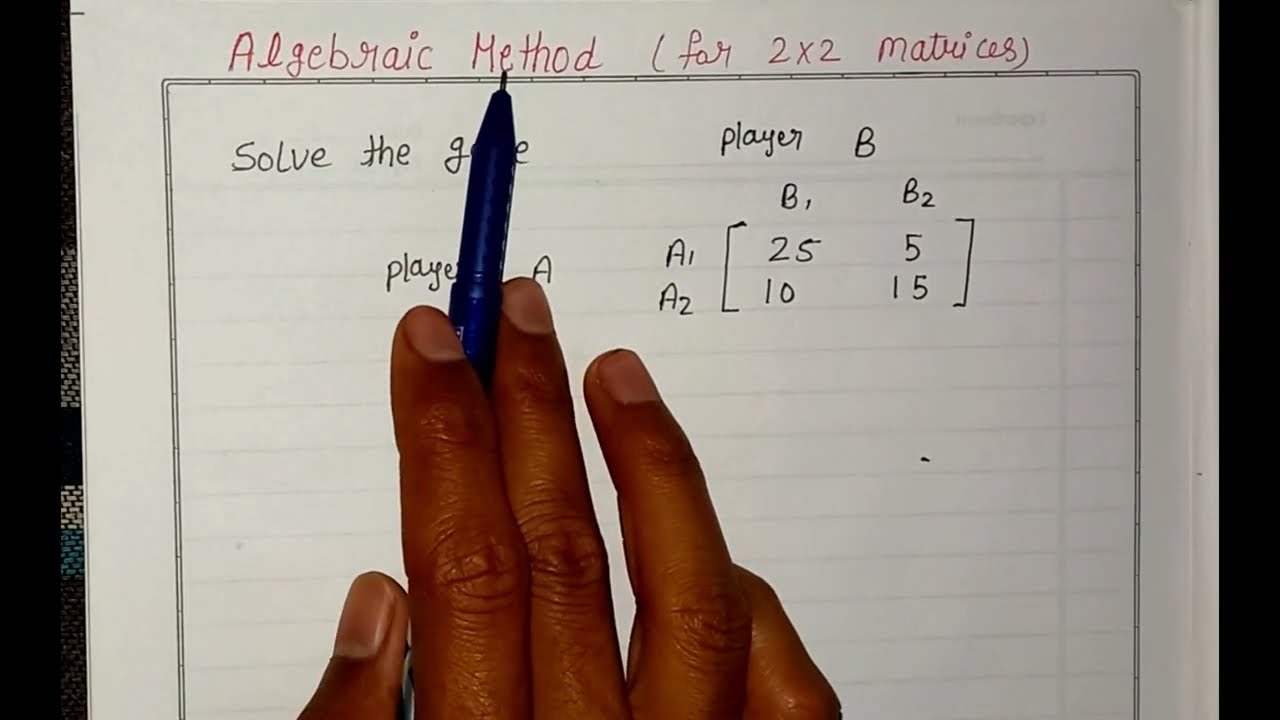 Algebraic Method (for 2x2 matrices)
Solve the
player B
B1 B2
A
A1 [ 25 5 ]
A2 [ 10 15 ]